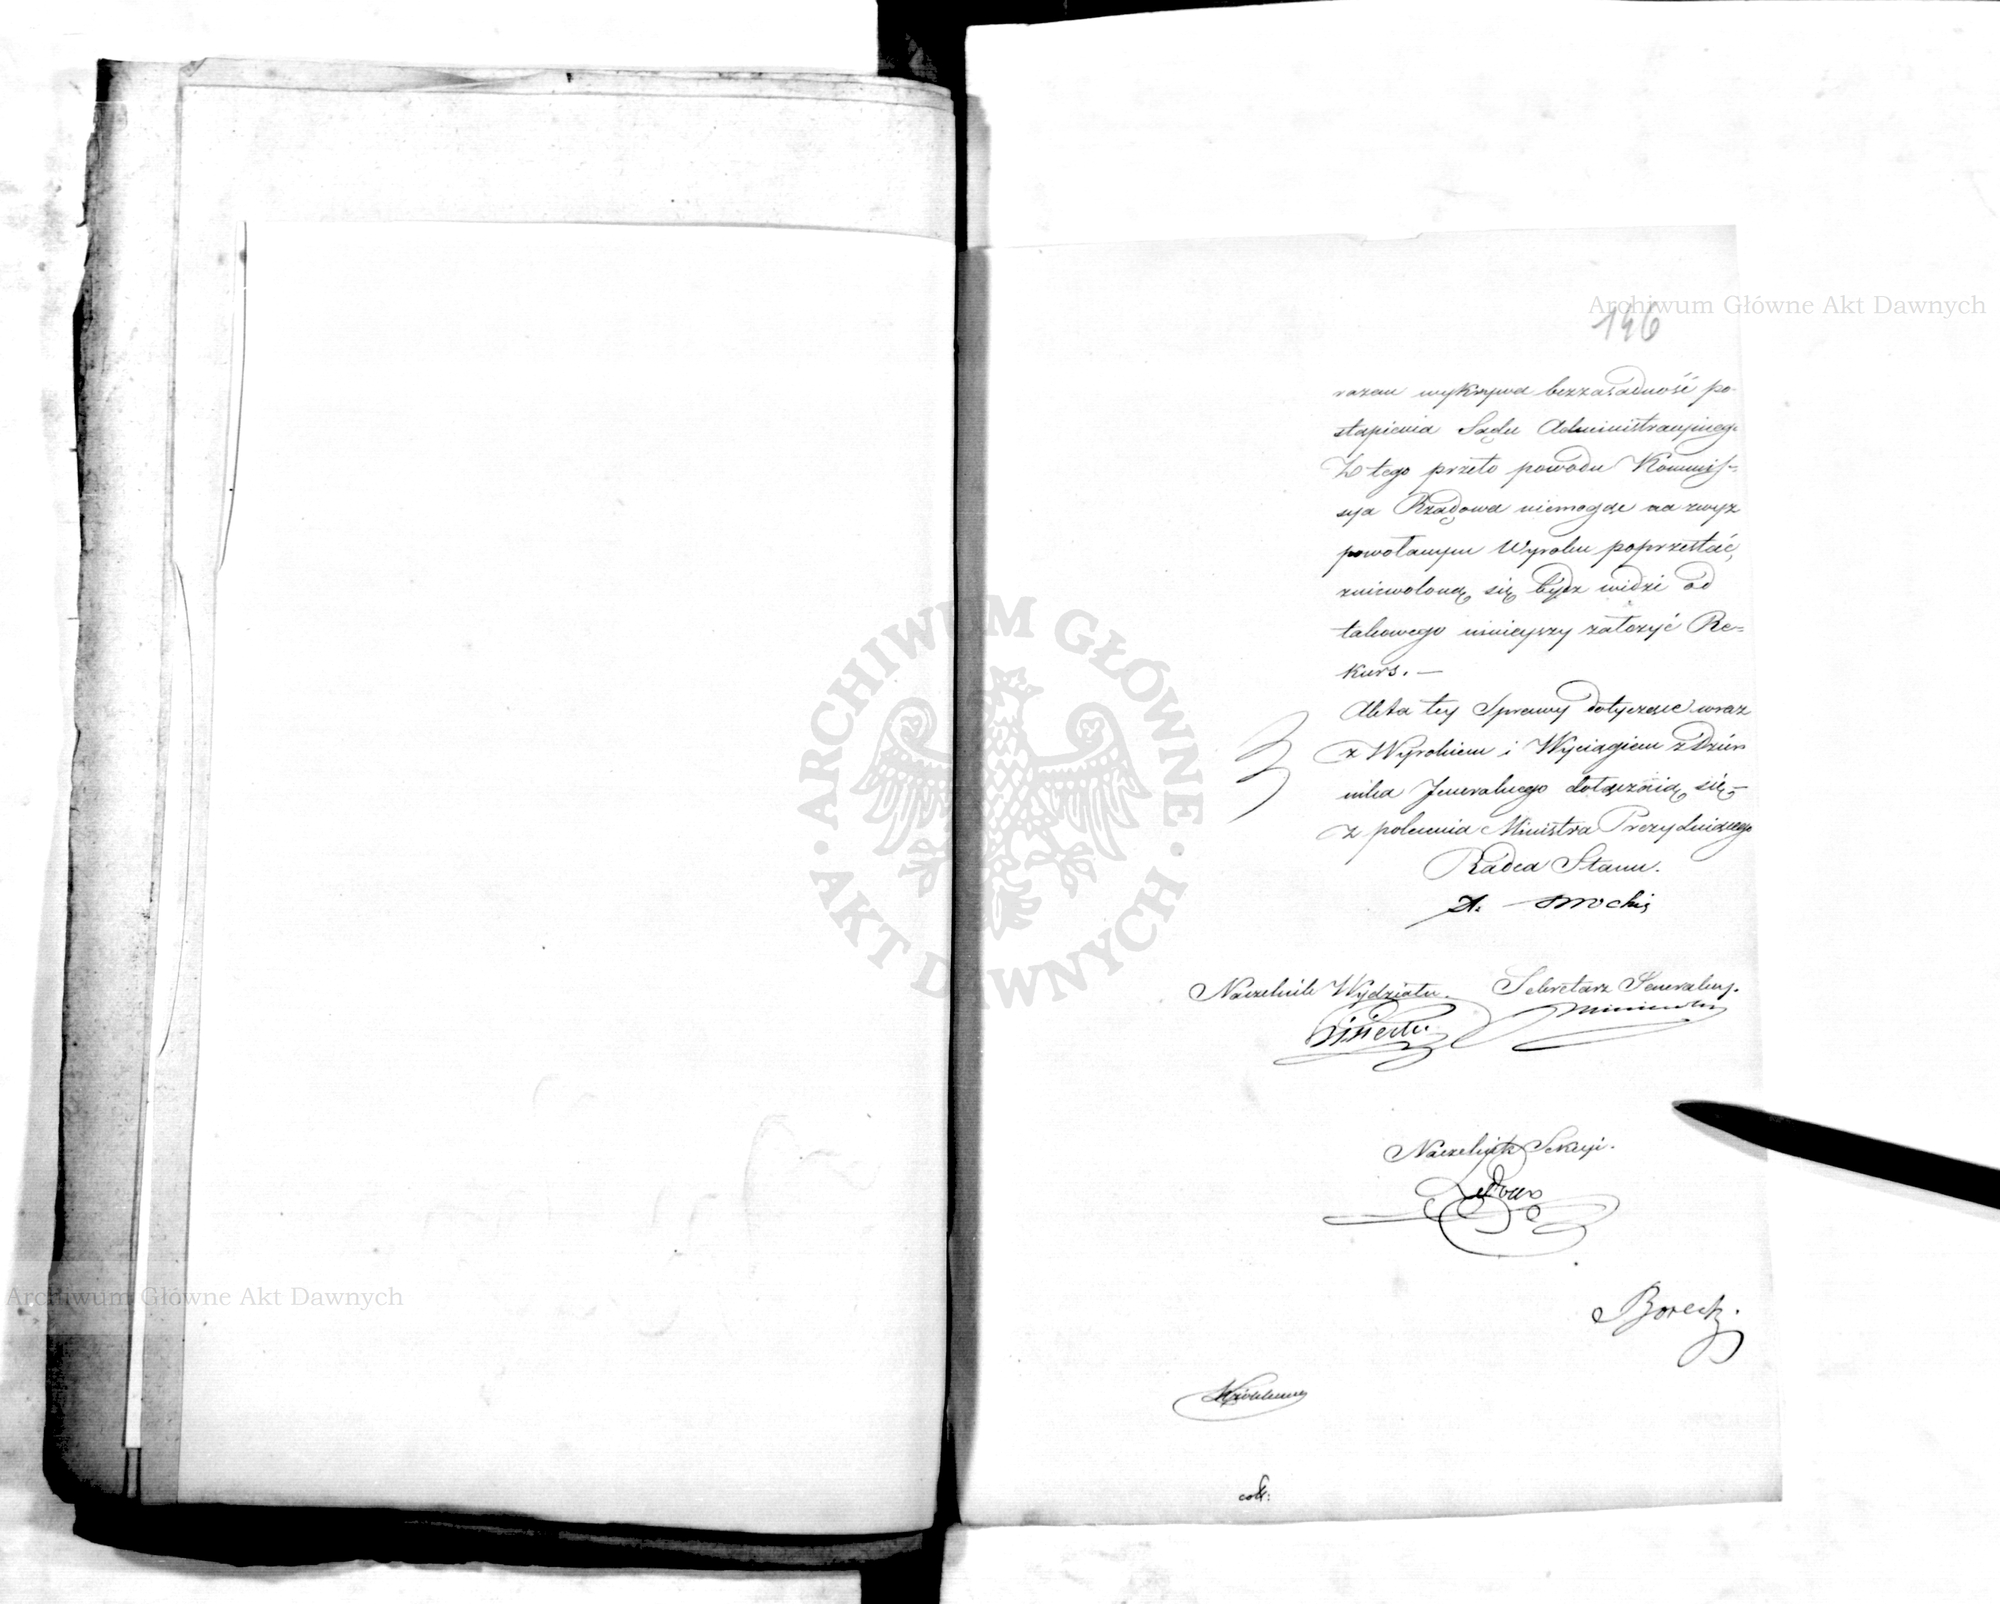 Archiwum Główne Akt Dawnych
146
razem wykrywa bezzasadność po-
stąpienia Sądu Administracyjnego
Z tego przeto powodu Kommis-
sya Rządowa niemogąc na zwyż
powołanym Wyroku poprzestać,
zniewoloną się bydz widzi od
takowego ninieyszy założyć Re=
kurs. —
Akta tey Sprawy dotyczące wraz
z Wyrokiem i Wyciągiem z Dzien
nika Jeneralnego dołączają się —
z polecenia Ministra Prezyduiącego
Radca Stanu.
Naczelnik Wydziału. Sekretarz Jeneralny.
Naczelnik Sekcyi.
ARCHIWUM GŁÓWNE
AKT DAWNYCH
Archiwum Główne Akt Dawnych